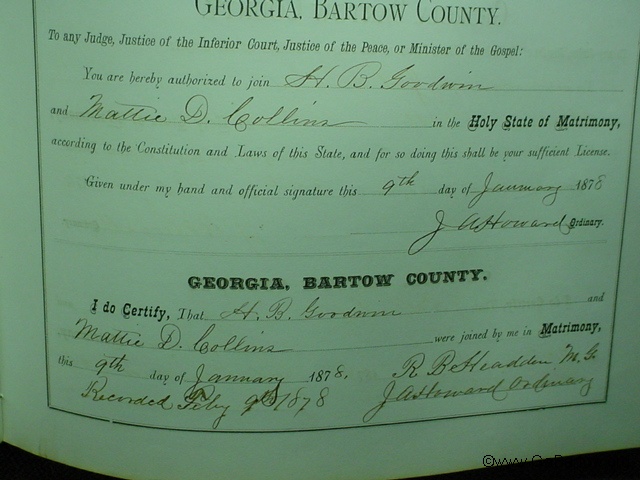 GEORGIA, BARTOW COUNTY.
To any Judge, Justice of the Inferior Court, Justice of the Peace, or Minister of the Gospel:
You are hereby authorized to join H. B. Goodwin
and Mattie D. Collins in the Holy State of Matrimony,
according to the Constitution and Laws of this State, and for so doing this shall be your sufficient License.
Given under my hand and official signature this 9th day of January 1878
J A Howard Ordinary.
GEORGIA, BARTOW COUNTY.
I do Certify, That H. B. Goodwin and
Mattie D. Collins were joined by me in Matrimony,
this 9th day of January 1878. R. B. Headden M. G.
Recorded Feby 9th 1878 J A Howard Ordinary